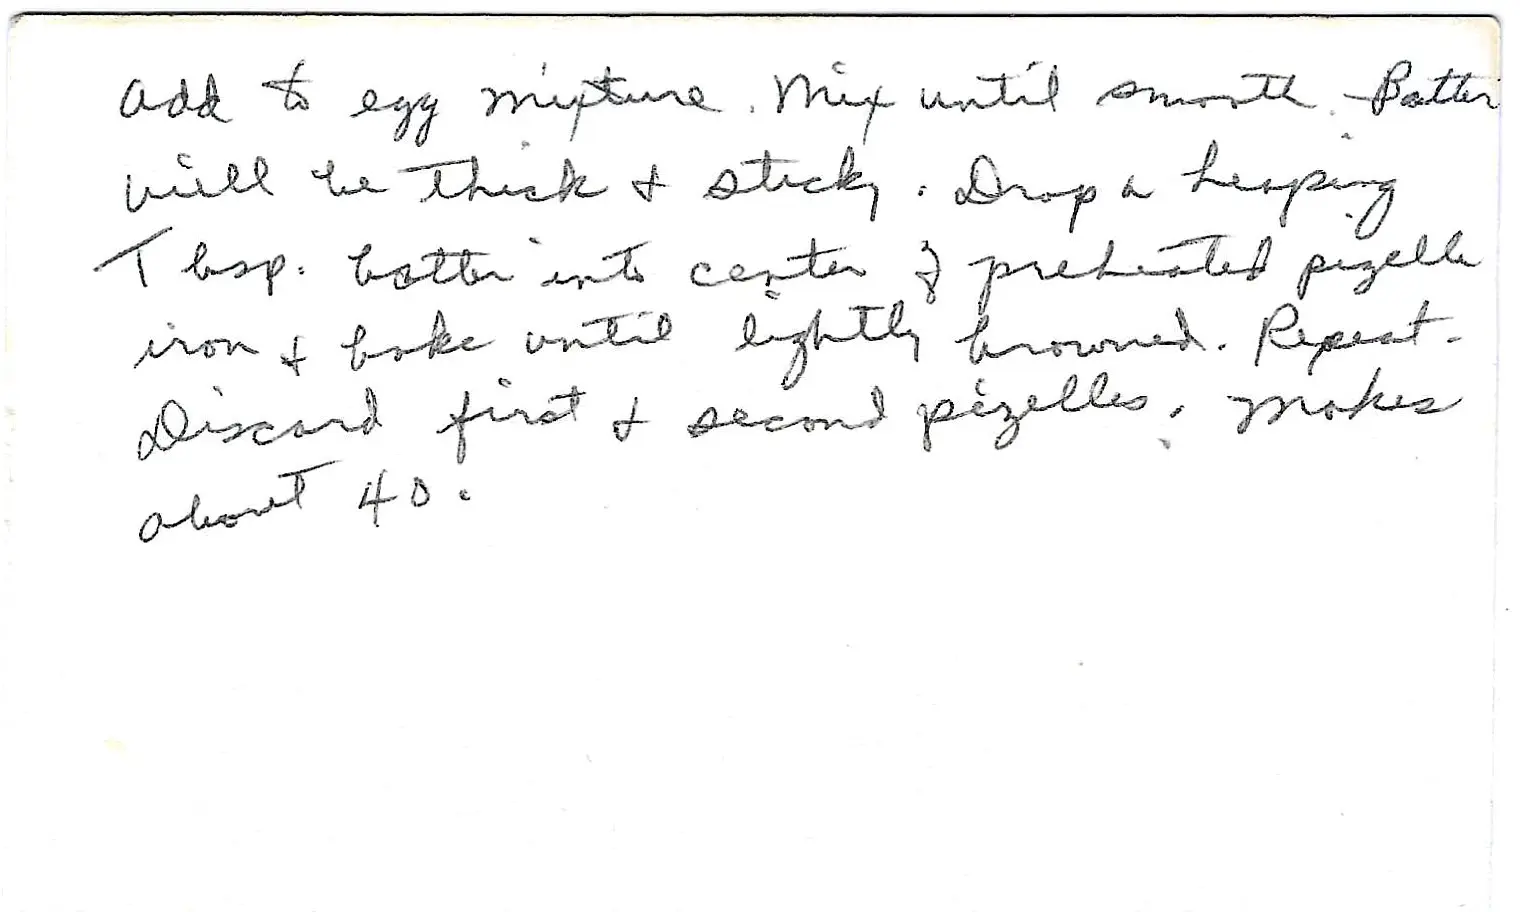 Add to egg mixture. Mix until smooth. Batter
will be thick & sticky. Drop a heaping
Tbsp. batter into center of preheated pizelle
iron & bake until lightly browned. Repeat.
Discard first & second pizelles. Makes
about 40.